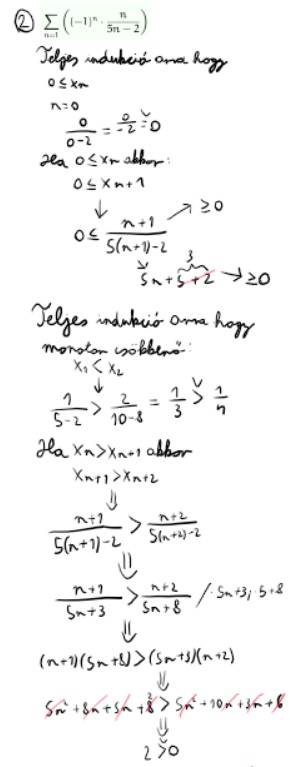 ② ∑_{n=1} ((-1)^n · n/(5n-2))
Teljes indukció arra hogy
0 ≤ xn
n=0
0/(0-2) = 0/-2 = 0
Ha 0 ≤ xn akkor:
0 ≤ xn+1
↓
0 ≤ (n+1)/(5(n+1)-2) → ≥0
5n+5+2 3 → ≥0
Teljes indukció arra hogy
monoton csökkenő:
x1 < x2
↓
1/(5-2) > 2/(10-8) = 1/3 > 1/4
Ha xn > xn+1 akkor
xn+1 > xn+2
⇓
(n+1)/(5(n+1)-2) > (n+2)/(5(n+2)-2)
⇓
(n+1)/(5n+3) > (n+2)/(5n+8) /·5n+3; ·5+8
⇓
(n+1)(5n+8) > (5n+3)(n+2)
⇓
5n²+8n+5n+8 2 > 5n²+10n+3n+6
⇓
2 > 0